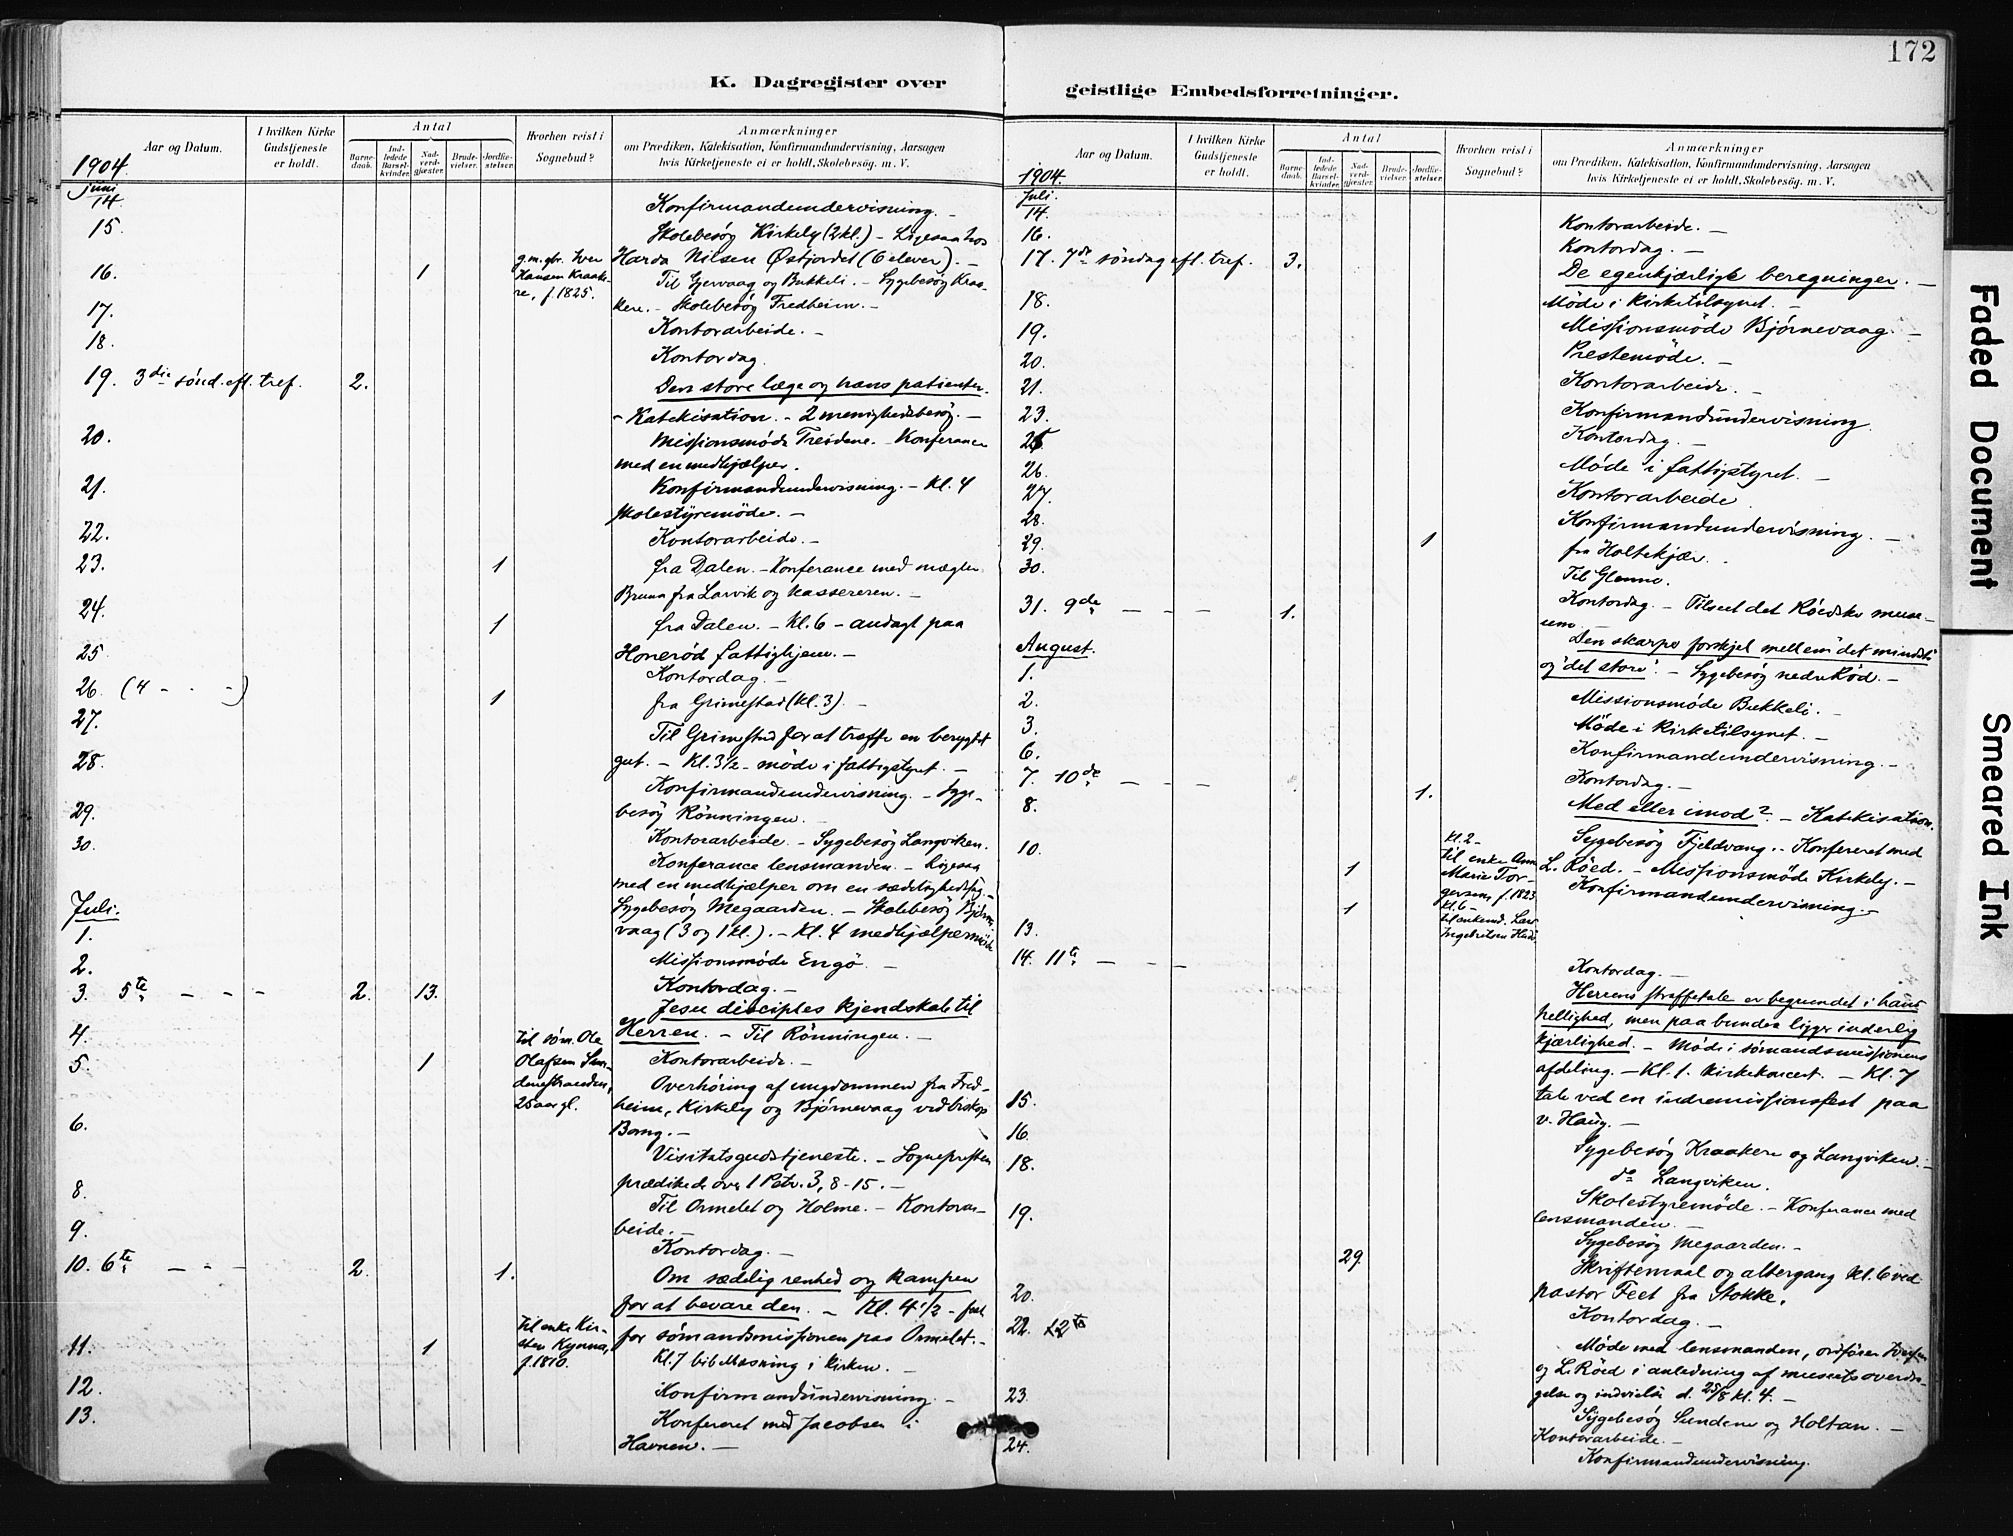 172
K. Dagregister over
geistlige Embedsforretninger.
Aar og Datum.
I hvilken Kirke Gudstjeneste er holdt.
Antal
Barnedaab.
Indledede Barselkvinder.
Nadverdgjæster.
Brudevielser.
Jordfæstelser.
Hvorhen reist i Sognebud?
Anmærkninger
om Prædiken, Katekisation, Konfirmandundervisning, Aarsagen
hvis Kirketjeneste ei er holdt, Skolebesög. m. V.
1904.
juni
14. Konfirmandundervisning. –
15. Skolebesøg Kirkely (2kl.) – Ligesaa hos
Harda Nilsen Østjordet (6 elever). –
16. 1 g.m.gbr. Iver Hansen Kraakere, f. 1825.
Til Gjervaag og Bukkeli. – Sygebesøg Kraakere. – Skolebesøg Fredheim. –
17. Kontorarbeide. –
18. Kontordag.
19. 3die sönd. eft. tref. 2. Den store læge og hans patienter.
– Katekisation. – 2 menighedsbesøg. –
20. Missionsmöde Treidene. – Konferance
med en medhjælper.
21. Konfirmandundervisning. – Kl. 4
skolestyremöde. –
22. Kontorarbeide. –
23. 1 fra Dalen. – Konferance med mægler
Bruun fra Larvik og kassereren. –
24. 1 fra Dalen. – Kl. 6 – andagt paa
Honerød fattighjem. –
25 Kontordag. –
26. (4 – – –) 1 fra Grimestad (kl. 3). –
27. Til Grimestad for at træffe en berygtet
gut. – Kl. 3½ – möde i fattigstyret. –
28. Konfirmandundervisning. – Sygebesøg Rönningen. –
29. Kontorarbeide. – Sygebesøg Langviken.
30. Konferance lensmanden. – Ligesaa
med en medhjælper om en sædelighedssag. –
Juli.
1. Sygebesøg Megaarden. – Skolebesøg Bjørnevaag (3 og 1 kl.). – Kl. 4 medhjælpermöde
2. Missionsmöde Engö. –
Kontordag. –
3. 5te – – – 2. 13. Jesu disciples kjendskab til
Herren. – Til Rönningen. –
4. Kontorarbeide. –
5. 1 til søm. Ole Olafsen Sundenestranden, 25 aar gl.
Overhöring af ungdommen fra Fredheim, Kirkely og Bjørnevaag ved biskop
Bang. –
6. Visitatsgudstjeneste. – Sognepresten
prædikede over 1 Petr. 3, 8-15. –
8. Til Ormelet og Holme. – Kontorarbeide. –
9. Kontordag. –
10. 6te – – – 2. 1. Om sædelig renhed og kampen
for at bevare den. – Kl. 4½ – fest
for sömandsmissionen paa Ormelet. –
Kl. 7 bibellæsning i kirken. –
11. 1 til enke Kirsten Kynna, f. 1810.
12. Konfirmandundervisning. –
13. Konfereret med Jacobsen i
Havnen. –
Aar og Datum.
I hvilken Kirke Gudstjeneste er holdt.
Antal
Barnedaab.
Indledede Barselkvinder.
Nadverdgjæster.
Brudevielser.
Jordfæstelser.
Hvorhen reist i Sognebud?
Anmærkninger
om Prædiken, Katekisation, Konfirmandundervisning, Aarsagen
hvis Kirketjeneste ei er holdt, Skolebesög. m. V.
1904.
Juli.
14. Kontorarbeide. –
16. Kontordag. –
17. 7de söndag eft. tref. 3. De egenkjærlige beregninger. –
18. Möde i kirketilsynet. –
19. Missionsmöde Bjørnevaag. –
20. Prestemöde. –
21. Kontorarbeide. –
23. Konfirmandundervisning.
25. Kontordag. –
26. Möde i fattigstyret. –
27. Kontorarbeide
28. Konfirmandundervisning. –
29. 1 fra Holtekjær.
30. Til Glenne.
Kontordag. – Tilseet det Röedske museum. –
31. 9de – – – 1. Den skarpe forskjel mellem "det mindste"
og "det store". – Sygebesøg nedre Röd. –
August.
1. Missionsmöde Bukkeli. –
2. Möde i kirketilsynet. –
3. Konfirmandundervisning. –
6. Kontordag. –
7. 10de – – 1. Med eller imod? – Katekisation.
8. Sygebesøg Fjeldvang. – Konfereret med
L. Röed. – Missionsmöde Kirkely. –
10. 1 kl. 2 – til enke Ann Marie Torgersen, f. 1823
1 kl. 6 –
Konfirmandundervisning. –
13. Kontordag. –
14. 11te – – – Herrens straffetale er begrundet i hans
hellighed, men paa bunden ligger inderlig
kjærlighed. – Möde i sömandsmissionens
afdeling. – Kl. 1. kirkekoncert. – Kl. 7
tale ved en indremissionsfest paa
v. Haug. –
15. Sygebesøg Kraakere og Langviken. –
16. do Langviken.
18. Skolestyremöde. – Konferance med
lensmanden. –
19. Sygebesøg Megaarden. –
29. Skriftemaal og altergang kl. 6 ved
pastor Feet fra Stokke.
20. Kontordag. –
22. 12te Möde med lensmanden, ordförer
og L. Röed i anledning af museets overdragelse og indvielse d. 25/8 kl. 4. –
23. Sygebesøg Sundene og Holtan. –
Kontorarbeide. –
24. Konfirmandundervisning.
Faded Document
Smeared Ink